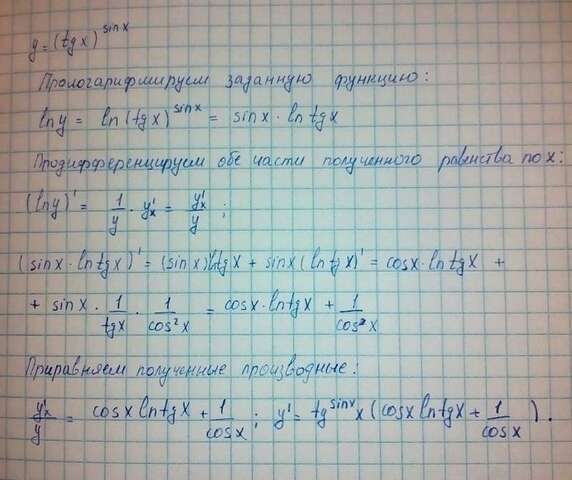 y = (tgx)^sinx
Прологарифмируем заданную функцию:
lny = ln(tgx)^sinx = sinx · ln tgx
Продифференцируем обе части полученного равенства по x:
(lny)' = 1/y · y'ₓ = y'ₓ/y ;
(sinx · ln tgx)' = (sinx)'ln tgx + sinx (ln tgx)' = cosx · ln tgx +
+ sinx · 1/tgx · 1/cos²x = cosx · ln tgx + 1/cos²x
Приравняем полученные производные:
y'ₓ/y = cosx ln tgx + 1/cosx ; y' = tg^sinx x (cosx ln tgx + 1/cosx) .